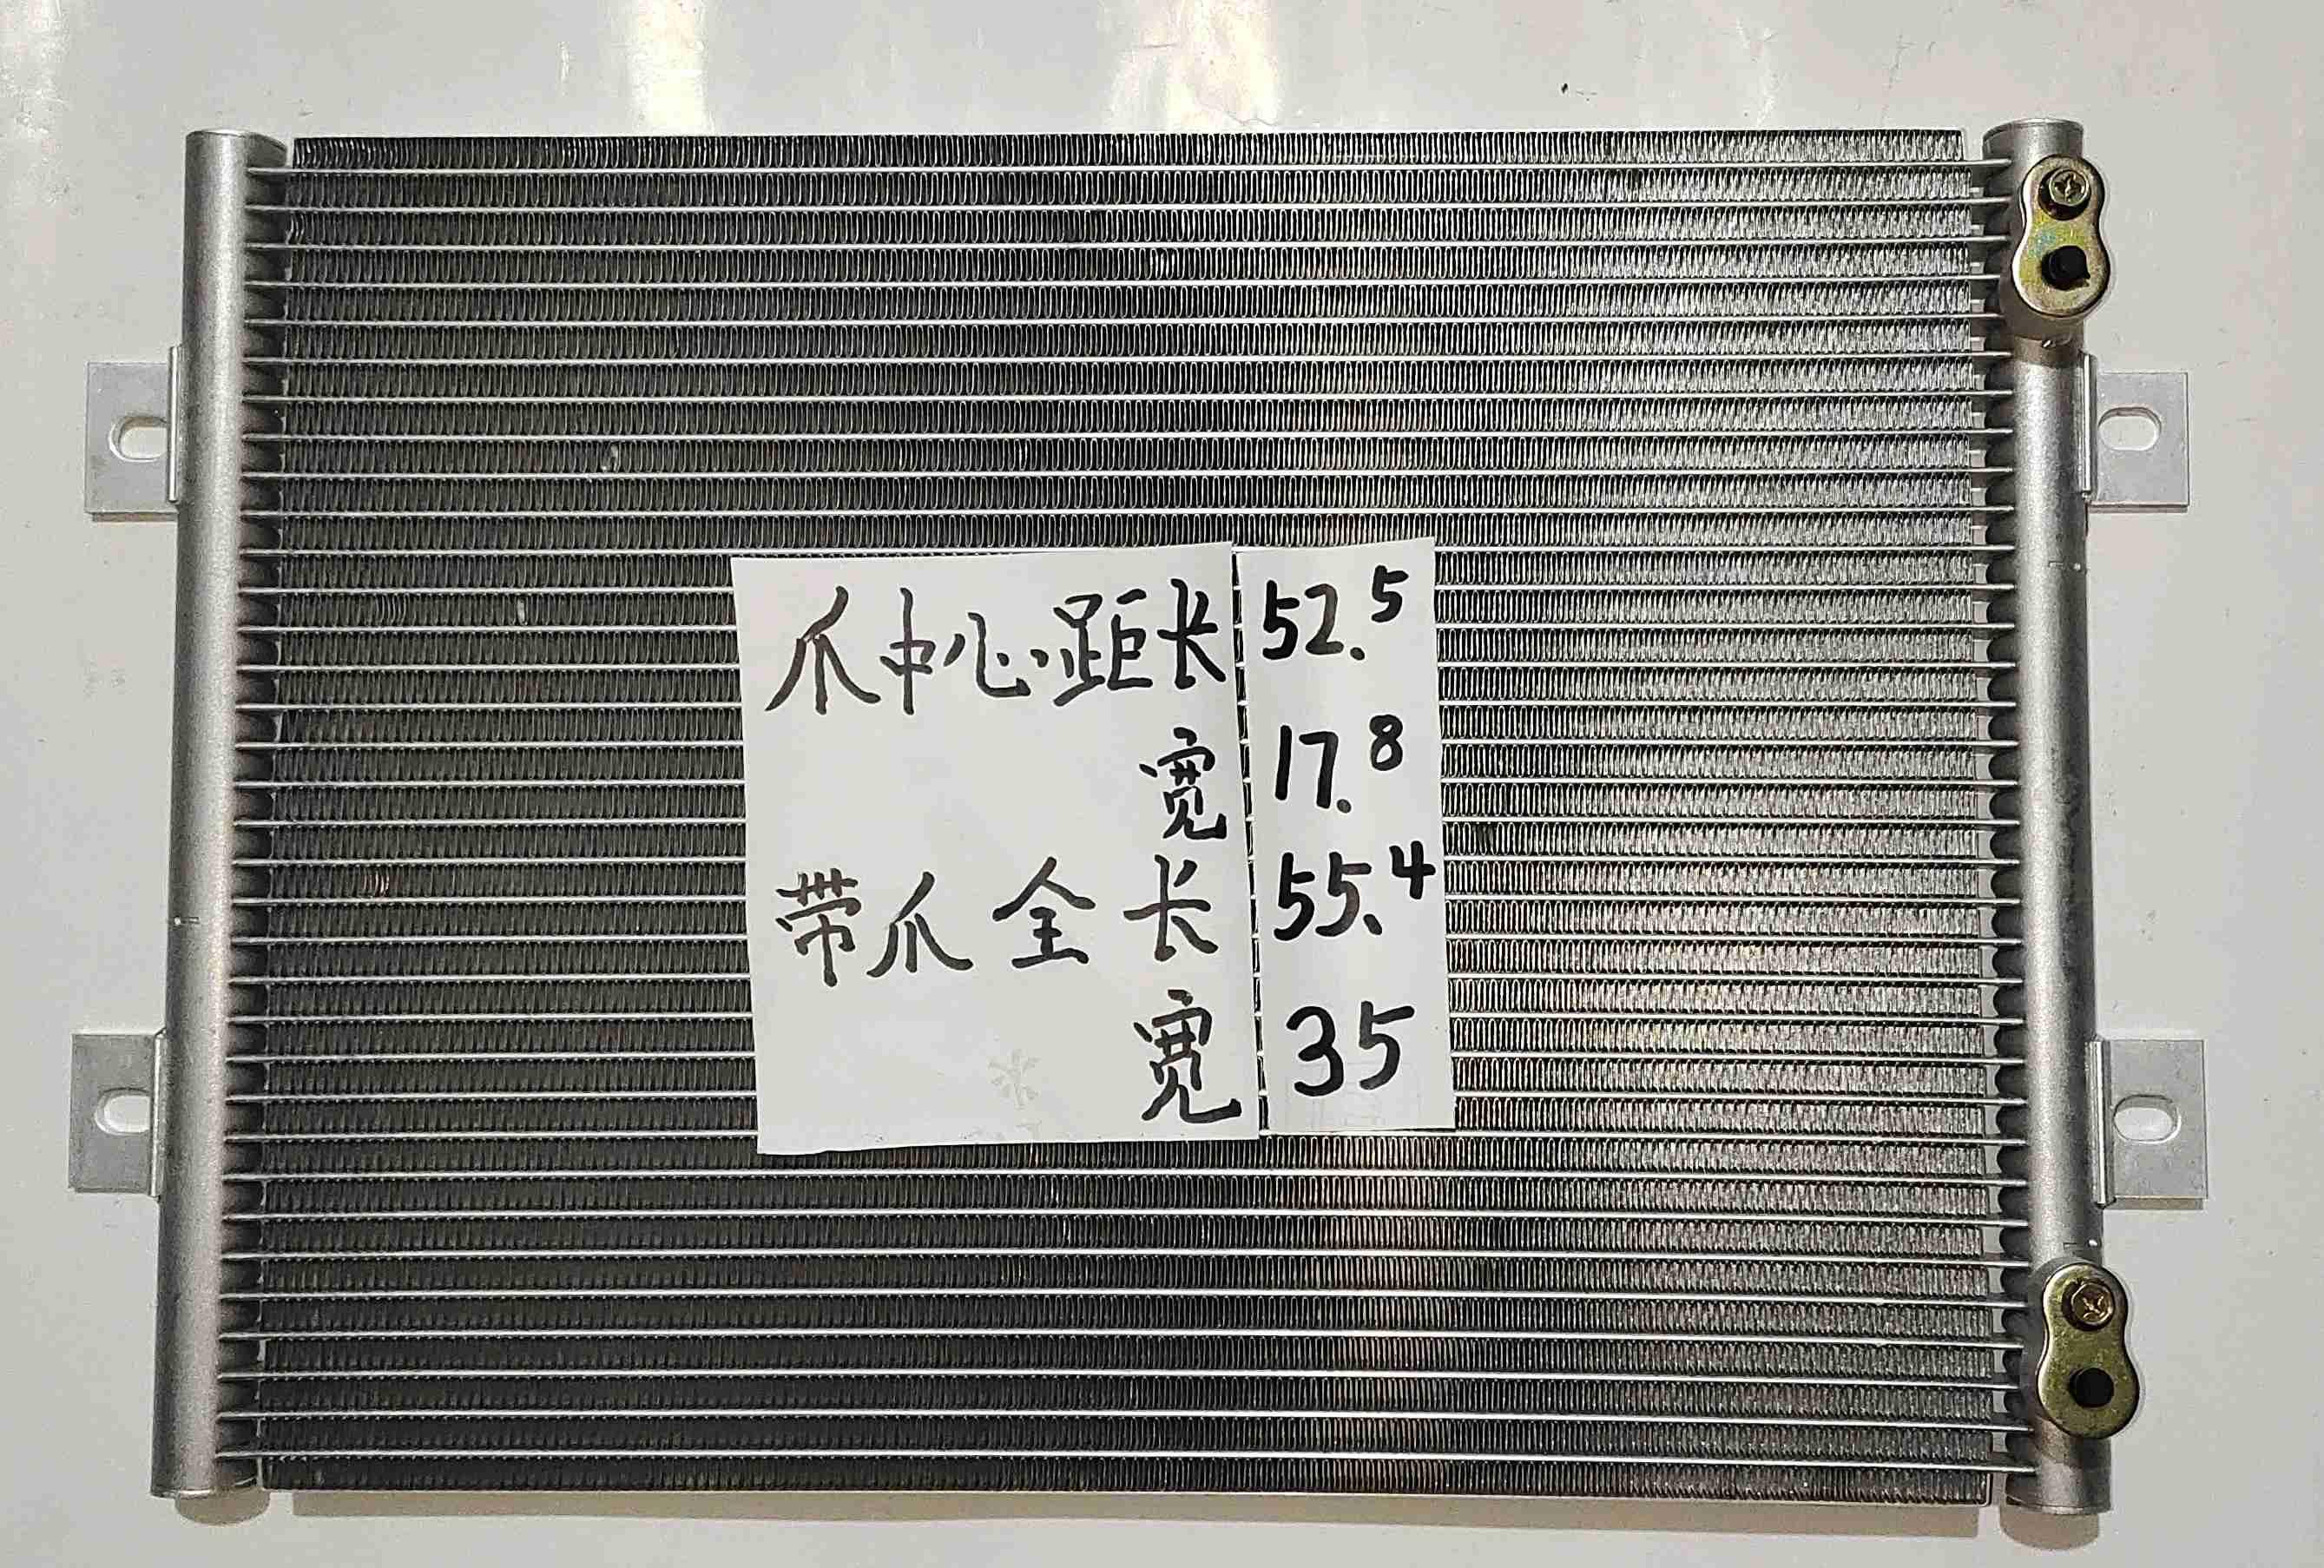 爪中心距长 52.5
宽 17.8
带爪全长 55.4
宽 35